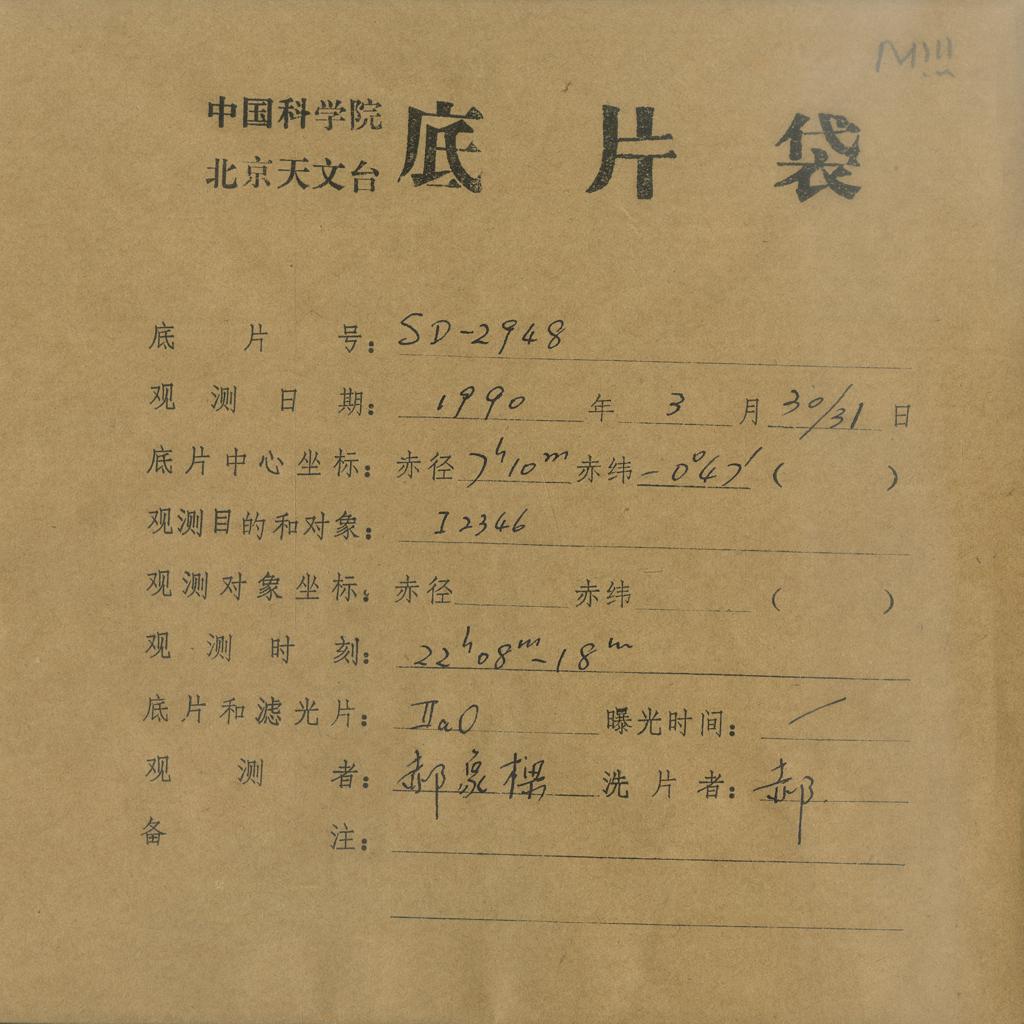 中国科学院
北京天文台
底片袋
底片号：SD-2948
观测日期：1990年3月30/31日
底片中心坐标：赤径7ʰ10ᵐ赤纬-0°47′（ ）
观测目的和对象：I2346
观测对象坐标：赤径 赤纬 （ ）
观测时刻：22ʰ08ᵐ-18ᵐ
底片和滤光片：IIaO 曝光时间：/
观测者：郝象樑 洗片者：郝
备注：